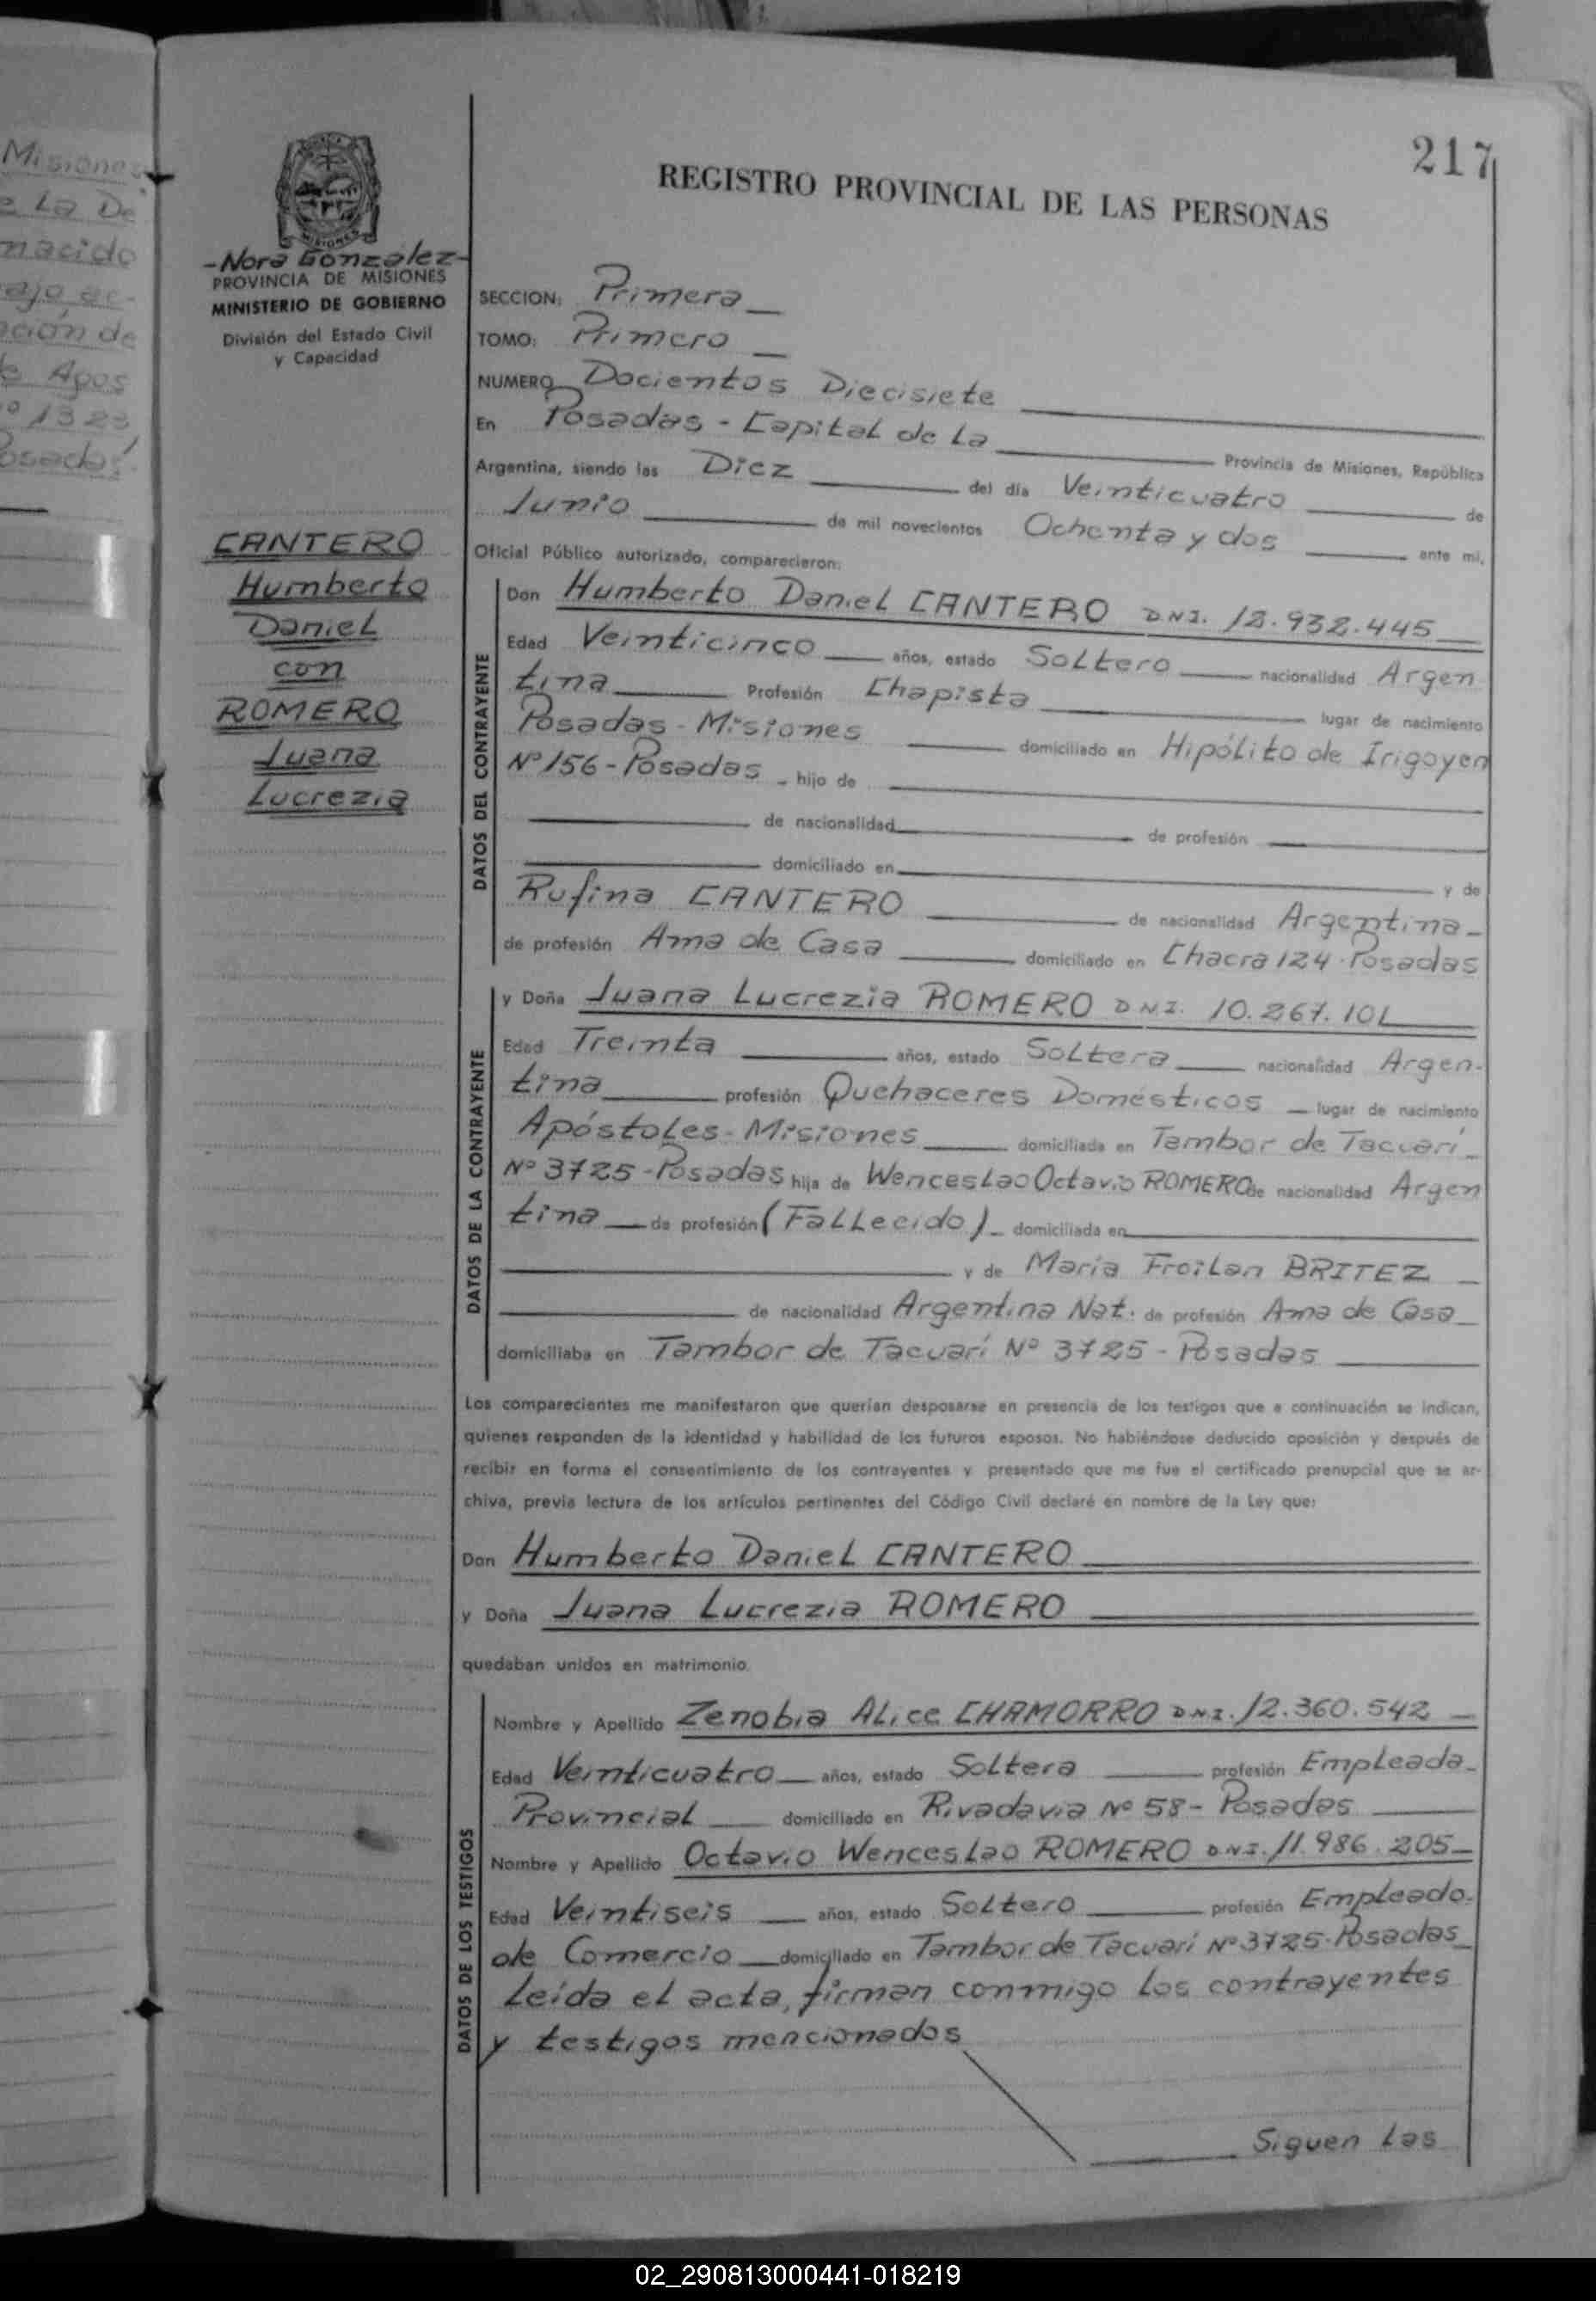 217
REGISTRO PROVINCIAL DE LAS PERSONAS
MISIONES
-Nora Gonzalez-
PROVINCIA DE MISIONES
MINISTERIO DE GOBIERNO
División del Estado Civil
y Capacidad
CANTERO
Humberto
Daniel
con
ROMERO
Juana
Lucrezia
Misiones
e La De
nacido
ajo ac-
ación de
Apos
1323
Posadas
SECCION: Primera
TOMO: Primero
NUMERO Docientos Diecisiete
En Posadas - Capital de La Provincia de Misiones, República
Argentina, siendo las Diez del día Veinticuatro de
Junio de mil novecientos Ochenta y dos ante mi,
Oficial Público autorizado, comparecieron:
DATOS DEL CONTRAYENTE
Don Humberto Daniel CANTERO DNI. 12.932.445
Edad Veinticinco años, estado Soltero nacionalidad Argen
tina Profesión Chapista lugar de nacimiento
Posadas - Misiones domiciliado en Hipólito de Irigoyen
Nº 156 - Posadas - hijo de
de nacionalidad de profesión
domiciliado en y de
Rufina CANTERO de nacionalidad Argentina-
de profesión Ama de Casa domiciliado en Chacra 124-Posadas
DATOS DE LA CONTRAYENTE
y Doña Juana Lucrezia ROMERO DNI. 10.267.101
Edad Treinta años, estado Soltera nacionalidad Argen-
tina profesión Quehaceres Domésticos - lugar de nacimiento
Apóstoles - Misiones domiciliada en Tambor de Tacuarí -
Nº 3725 - Posadas hija de Wenceslao Octavio ROMERO de nacionalidad Argen
tina de profesión (Fallecido) - domiciliada en
y de María Froilan BRITEZ -
de nacionalidad Argentina Nat. de profesión Ama de Casa
domiciliaba en Tambor de Tacuarí Nº 3725 - Posadas
Los comparecientes me manifestaron que querían desposarse en presencia de los testigos que a continuación se indican,
quienes responden de la identidad y habilidad de los futuros esposos. No habiéndose deducido oposición y después de
recibir en forma el consentimiento de los contrayentes y presentado que me fue el certificado prenupcial que se ar-
chiva, previa lectura de los artículos pertinentes del Código Civil declaré en nombre de la Ley que:
Don Humberto Daniel CANTERO
y Doña Juana Lucrezia ROMERO
quedaban unidos en matrimonio.
DATOS DE LOS TESTIGOS
Nombre y Apellido Zenobia Alice CHAMORRO DNI. 12.360.542
Edad Veinticuatro años, estado Soltera profesión Empleada-
Provincial domiciliado en Rivadavia Nº 58 - Posadas
Nombre y Apellido Octavio Wenceslao ROMERO DNI. 11.986.205
Edad Veintiseis años, estado Soltero profesión Empleado-
de Comercio domiciliado en Tambor de Tacuarí Nº 3725-Posadas
Leída el acta, firman conmigo los contrayentes
y testigos mencionados
Siguen Las
02_290813000441-018219